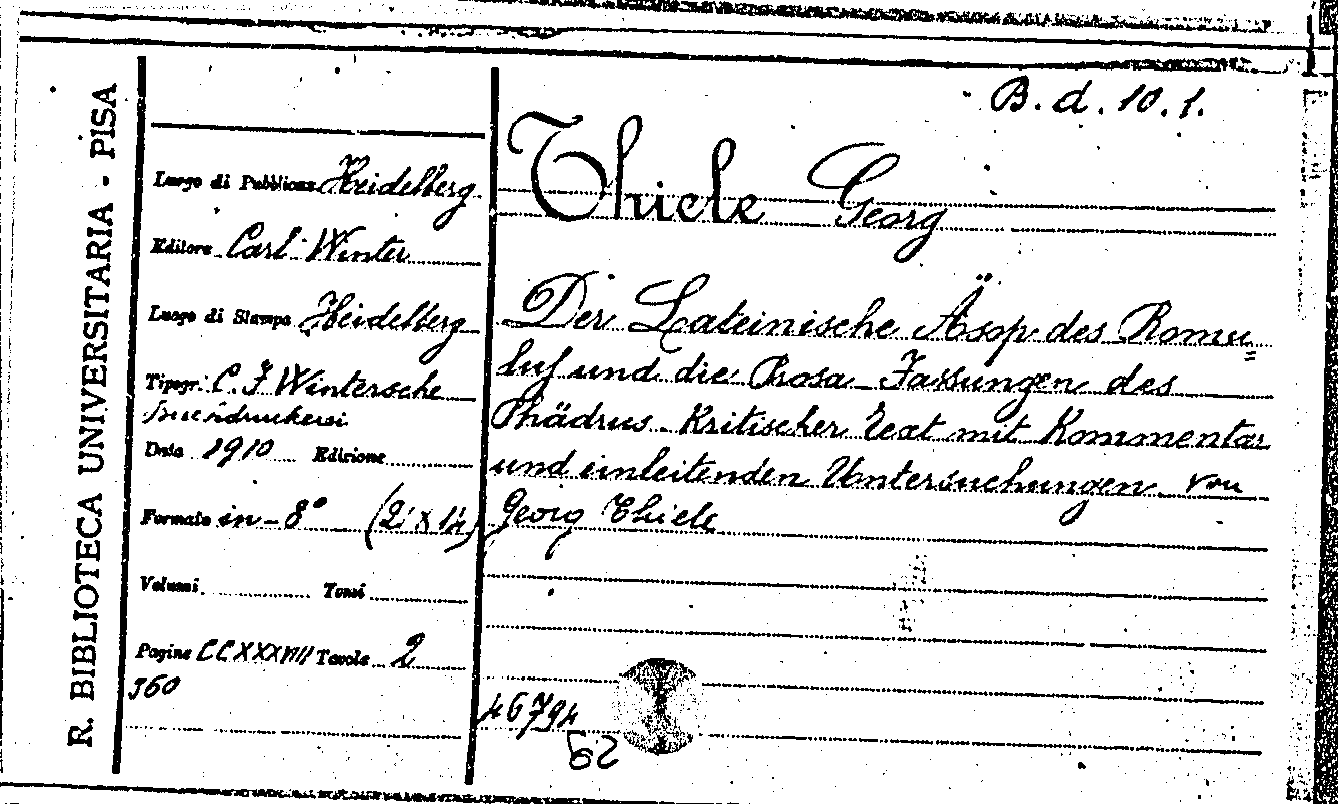 R. BIBLIOTECA UNIVERSITARIA - PISA
B. d. 10. 1.
Luogo di Pubblicaz. Heidelberg
Editore Carl Winter
Luogo di Stampa Heidelberg
Tipogr. C. F. Wintersche
Buchdruckerei
Data 1910 Edizione
Formato in-8°
Volumi Tomi
Pagine CCXXXVIII Tavole 2
360
Thiele Georg
Der Lateinische Äsop des Romu=
lus und die Prosa-Fassungen des
Phädrus. Kritischer Text mit Kommentar
und einleitenden Untersuchungen von
Georg Thiele
46794